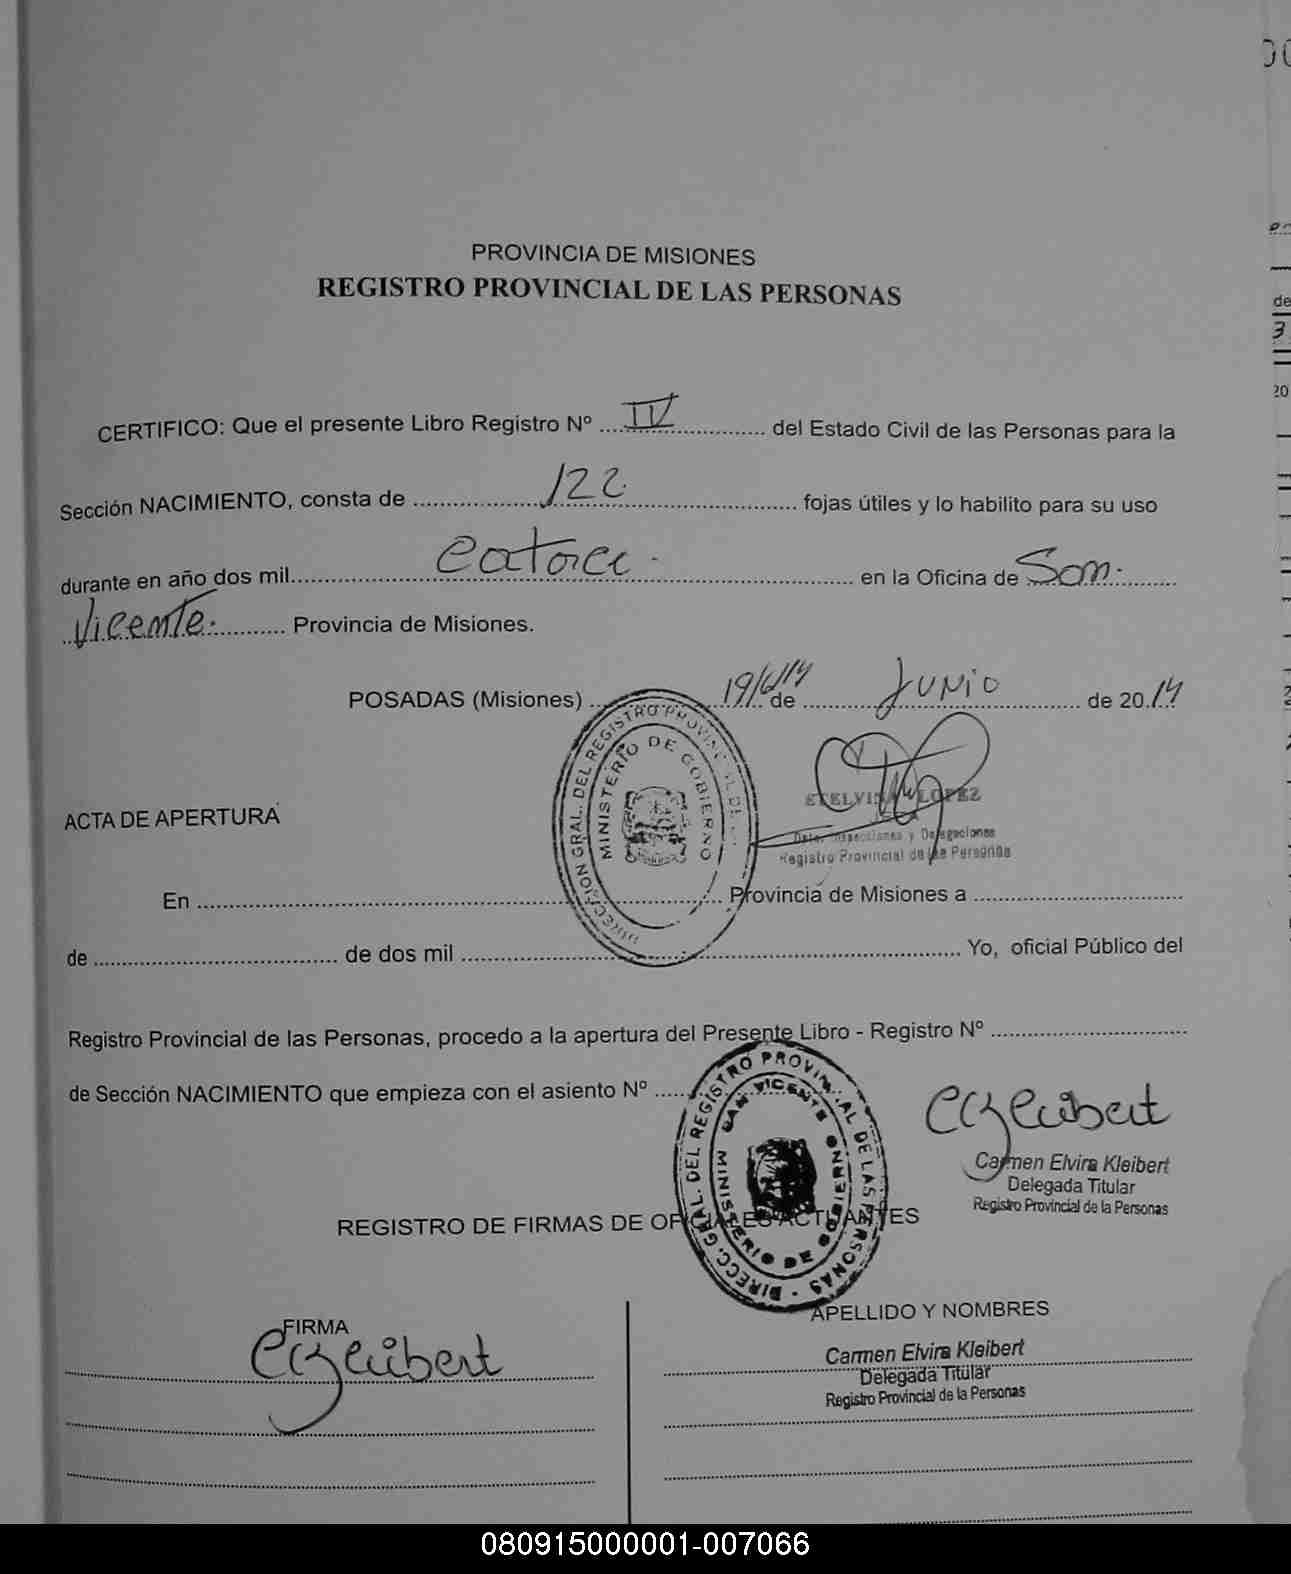 PROVINCIA DE MISIONES
REGISTRO PROVINCIAL DE LAS PERSONAS
CERTIFICO: Que el presente Libro Registro Nº .... IV .... del Estado Civil de las Personas para la
Sección NACIMIENTO, consta de .... 122 .... fojas útiles y lo habilito para su uso
durante en año dos mil .... catorce .... en la Oficina de San
Vicente. .... Provincia de Misiones.
POSADAS (Misiones) .... 19/6/14 de .... Junio .... de 20.14
DIRECCION GRAL. DEL REGISTRO PROVINCIAL DE
MINISTERIO DE GOBIERNO
LOPEZ
Dpto. Inspecciones y Delegaciones
Registro Provincial de las Personas
ACTA DE APERTURA
En .... Provincia de Misiones a ....
de .... de dos mil .... Yo, oficial Público del
Registro Provincial de las Personas, procedo a la apertura del Presente Libro - Registro Nº ....
de Sección NACIMIENTO que empieza con el asiento Nº ....
DIRECC. GRAL. DEL REGISTRO PROVINCIAL DE LAS PERSONAS -
SAN VICENTE
MINISTERIO DE GOBIERNO
Carmen Elvira Kleibert
Delegada Titular
Registro Provincial de la Personas
REGISTRO DE FIRMAS DE OFICIALES ACTUANTES
FIRMA
APELLIDO Y NOMBRES
Carmen Elvira Kleibert
Delegada Titular
Registro Provincial de la Personas
080915000001-007066